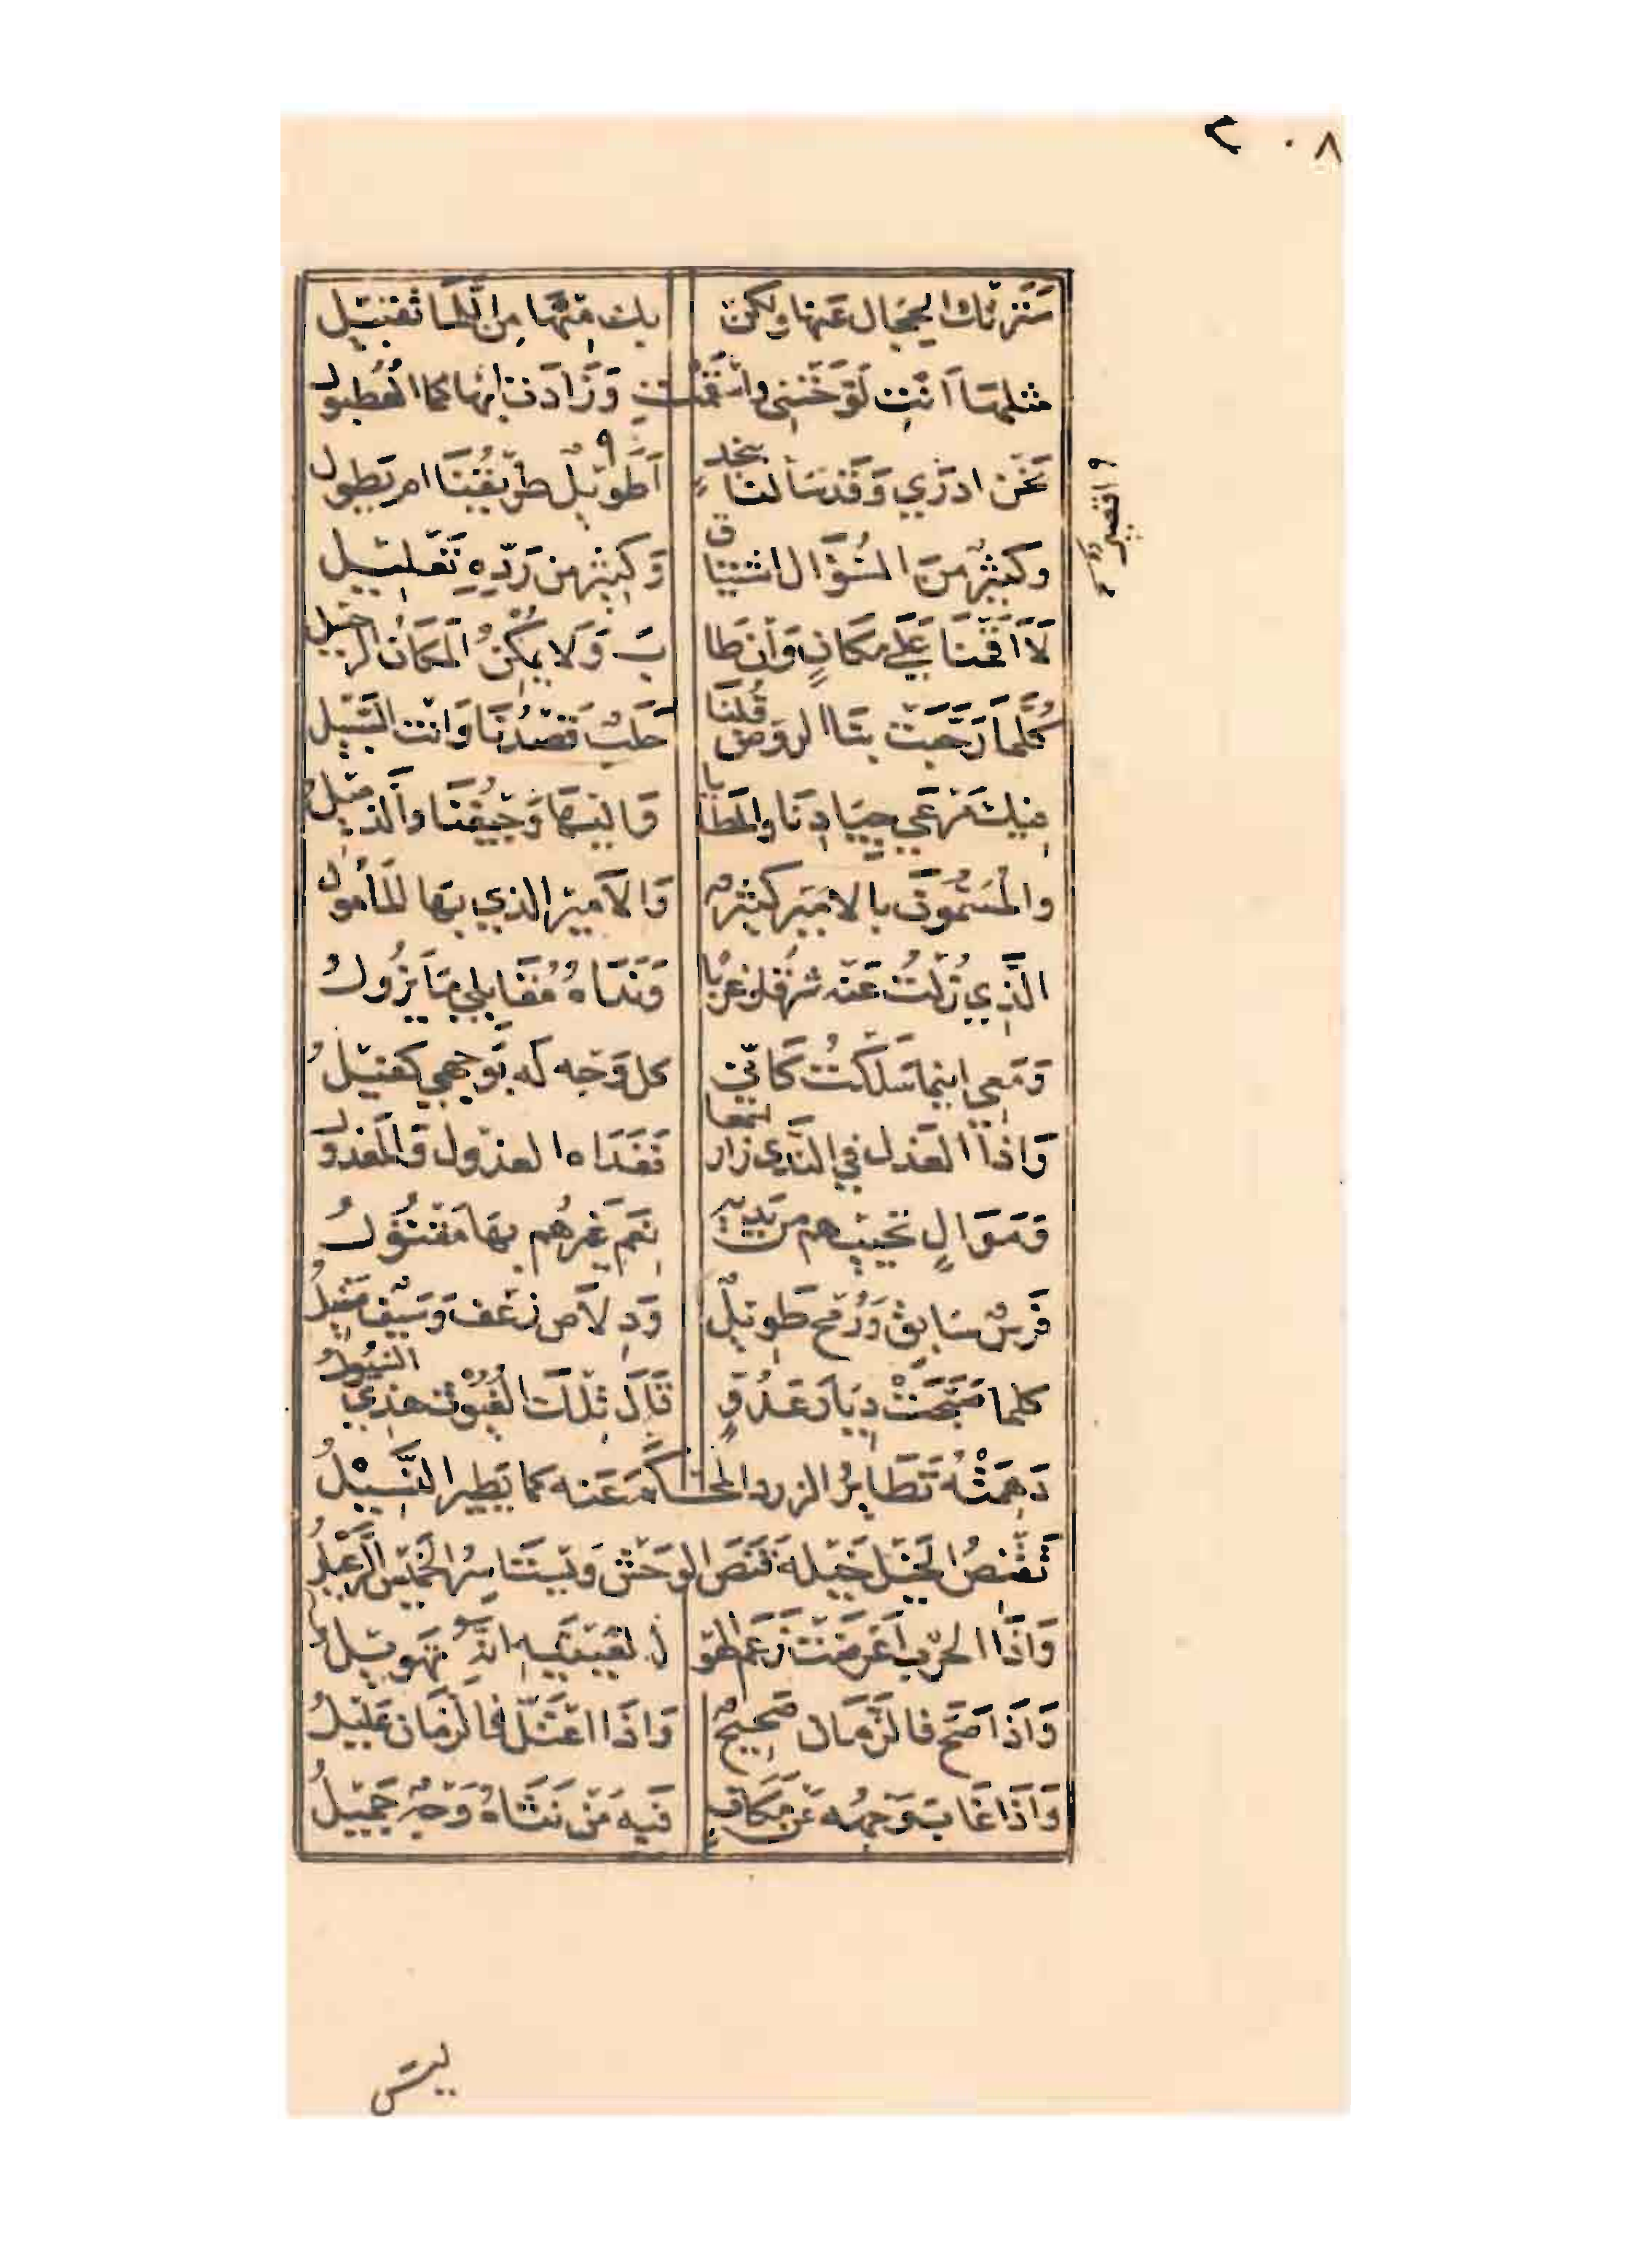 ٢٠٨
سَتَرَتْك الحِجَال عَنها ولكن بك مِنْهَا مِن اللَّمَا تَقْبِيْل
مثلهَا اَنْتِ لَوّحَتْنِي واَسْقَمْتِ وَزَادت ابهَاكما العُطبول
نَحْن ادرَي وَقَد سَألنَا بنجدٍ اَطَوِيْلٌ طَرِيْقُنَا ام يَطول
اقصير
وكَثِيْرٌ مِنَ السُّؤَال اشتيَاق وَكَثِيْر من رَدّهِ تَعْلِيْل
لاَ اَقَمْنَا عَلَي مكَانٍ وَاِنْ طَا بَ وَلا يمْكِنُ المَكَان الرحيل
كُلَّمَا رَحَّبَتْ بنَا الروض قُلنَا حَلَبٌ قَصْدُنَا وَانت السَّبِيْل
فِيكِ مَرْعَي جِيَادِنَا والمَطَايا وَاليْهَا وَجِيْفُنَا والذَّمِيْلُ
والْمُسَمُّوْنَ بالاَمِيْر كَثِيْرٌ وَالاَمِيْر الذي بهَا المَأْمُول
الَّذِي زُلْتُ عَنْه شرْقًا وَغربًا وَنَدَاهُ مُقَابلِي مَا يَزُولُ
وَمَعِي اينما سَلَكتُ كَأنّي كل وَجْه لَه بوَجهي كَفِيْلُ
وَاِذَا العَذل في النَّدَي زار سَمعا فَفَدَاه العذول وَالمَعْذول
وَمَوَالٍ تُحْيِيْهم من يَدَيْه نِعَم غَيْرهُم بهَا مَقْتُوْلُ
فَرَسٌ سَابِقٌ وَرُمْح طَوِيْلٌ وَدِلاَص زَغْف وَسَيْف صَقِيْلُ
كلما صَبَّحَتْ دِيَارَ عَدُوٍّ قَالَ تِلْكَ الْغُيُوْث هَذِي السُّيُول
دَهِمَتْهُ تَطَايِرُ الزرد المُحْكَمَ عَنه كما يَطِير النَّسِيْلُ
تَقْنِصُ الْخَيْلَ خَيْلُه قَنَصَ الوَحْش وَيَسْتَاسِرُ الْخَمِيْس الرَّعِيْلُ
وَاِذَا الحَرْب اَعْرَضَتْ زَعَم الهَوْ ل لعَيْنَيْهِ اَنَّهُ تَهْوِيْلُ
وَاِذَا صَحَّ فالزَّمَان صَحِيْحٌ وَاِذَا اعْتَلَّ فالزَّمَان عَلِيْلُ
وَاِذَا غَابَ وَجهُه عَن مَكَانٍ فَبِه مِنْ نَثَاهُ وَجْهٌ جَمِيْلُ
ليسَ